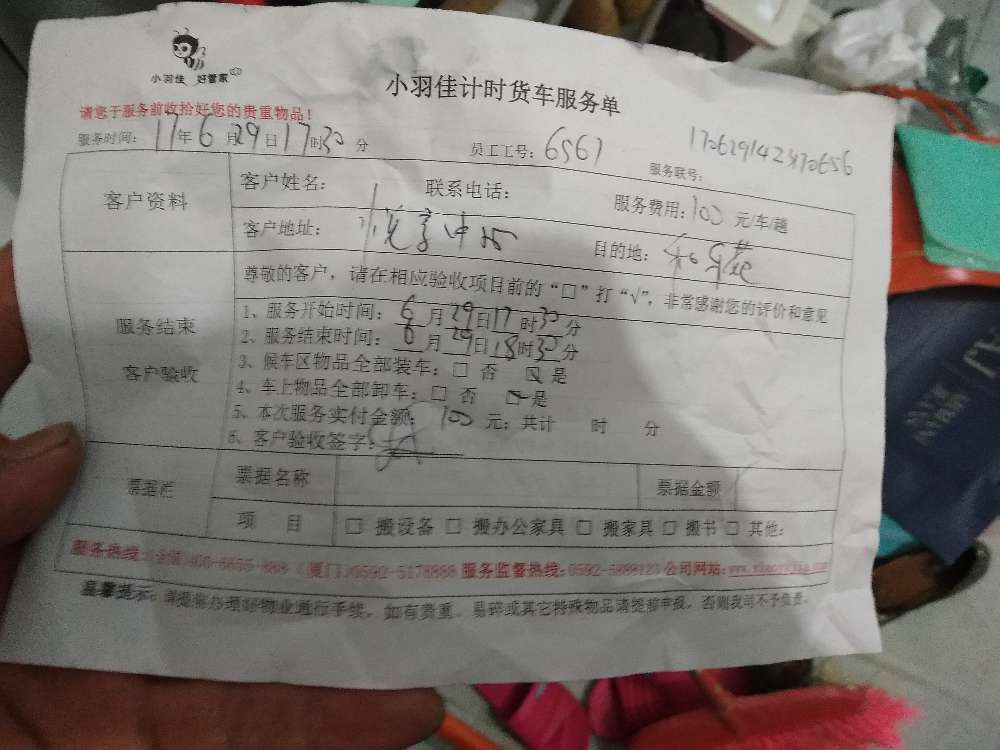 小羽佳 好管家
小羽佳计时货车服务单
请您于服务前收拾好您的贵重物品！
服务时间：17年6月29日17时30分 员工工号：6567 服务联号：
客户资料 客户姓名： 联系电话： 服务费用：100元/车/趟
客户地址： 中 目的地：
尊敬的客户，请在相应验收项目前的“□”打“√”，非常感谢您的评价和意见
服务结束
客户验收
1、服务开始时间：6月29日17时30分
2、服务结束时间：6月29日18时30分
3、候车区物品全部装车：□ 否 ☑ 是
4、车上物品全部卸车：□ 否 ☑ 是
5、本次服务实付金额：100元；共计 时 分
6、客户验收签字：
票据栏 票据名称 票据金额
项 目 □ 搬设备 □ 搬办公家具 □ 搬家具 □ 搬书 □ 其他：
服务热线：(全国)400-6655-888 (厦门)0592-5178888 服务监督热线：0592-5888123 公司网站：
温馨提示：请提前办理好物业通行手续，如有贵重、易碎或其它特殊物品请提前申报，否则我司不予负责。